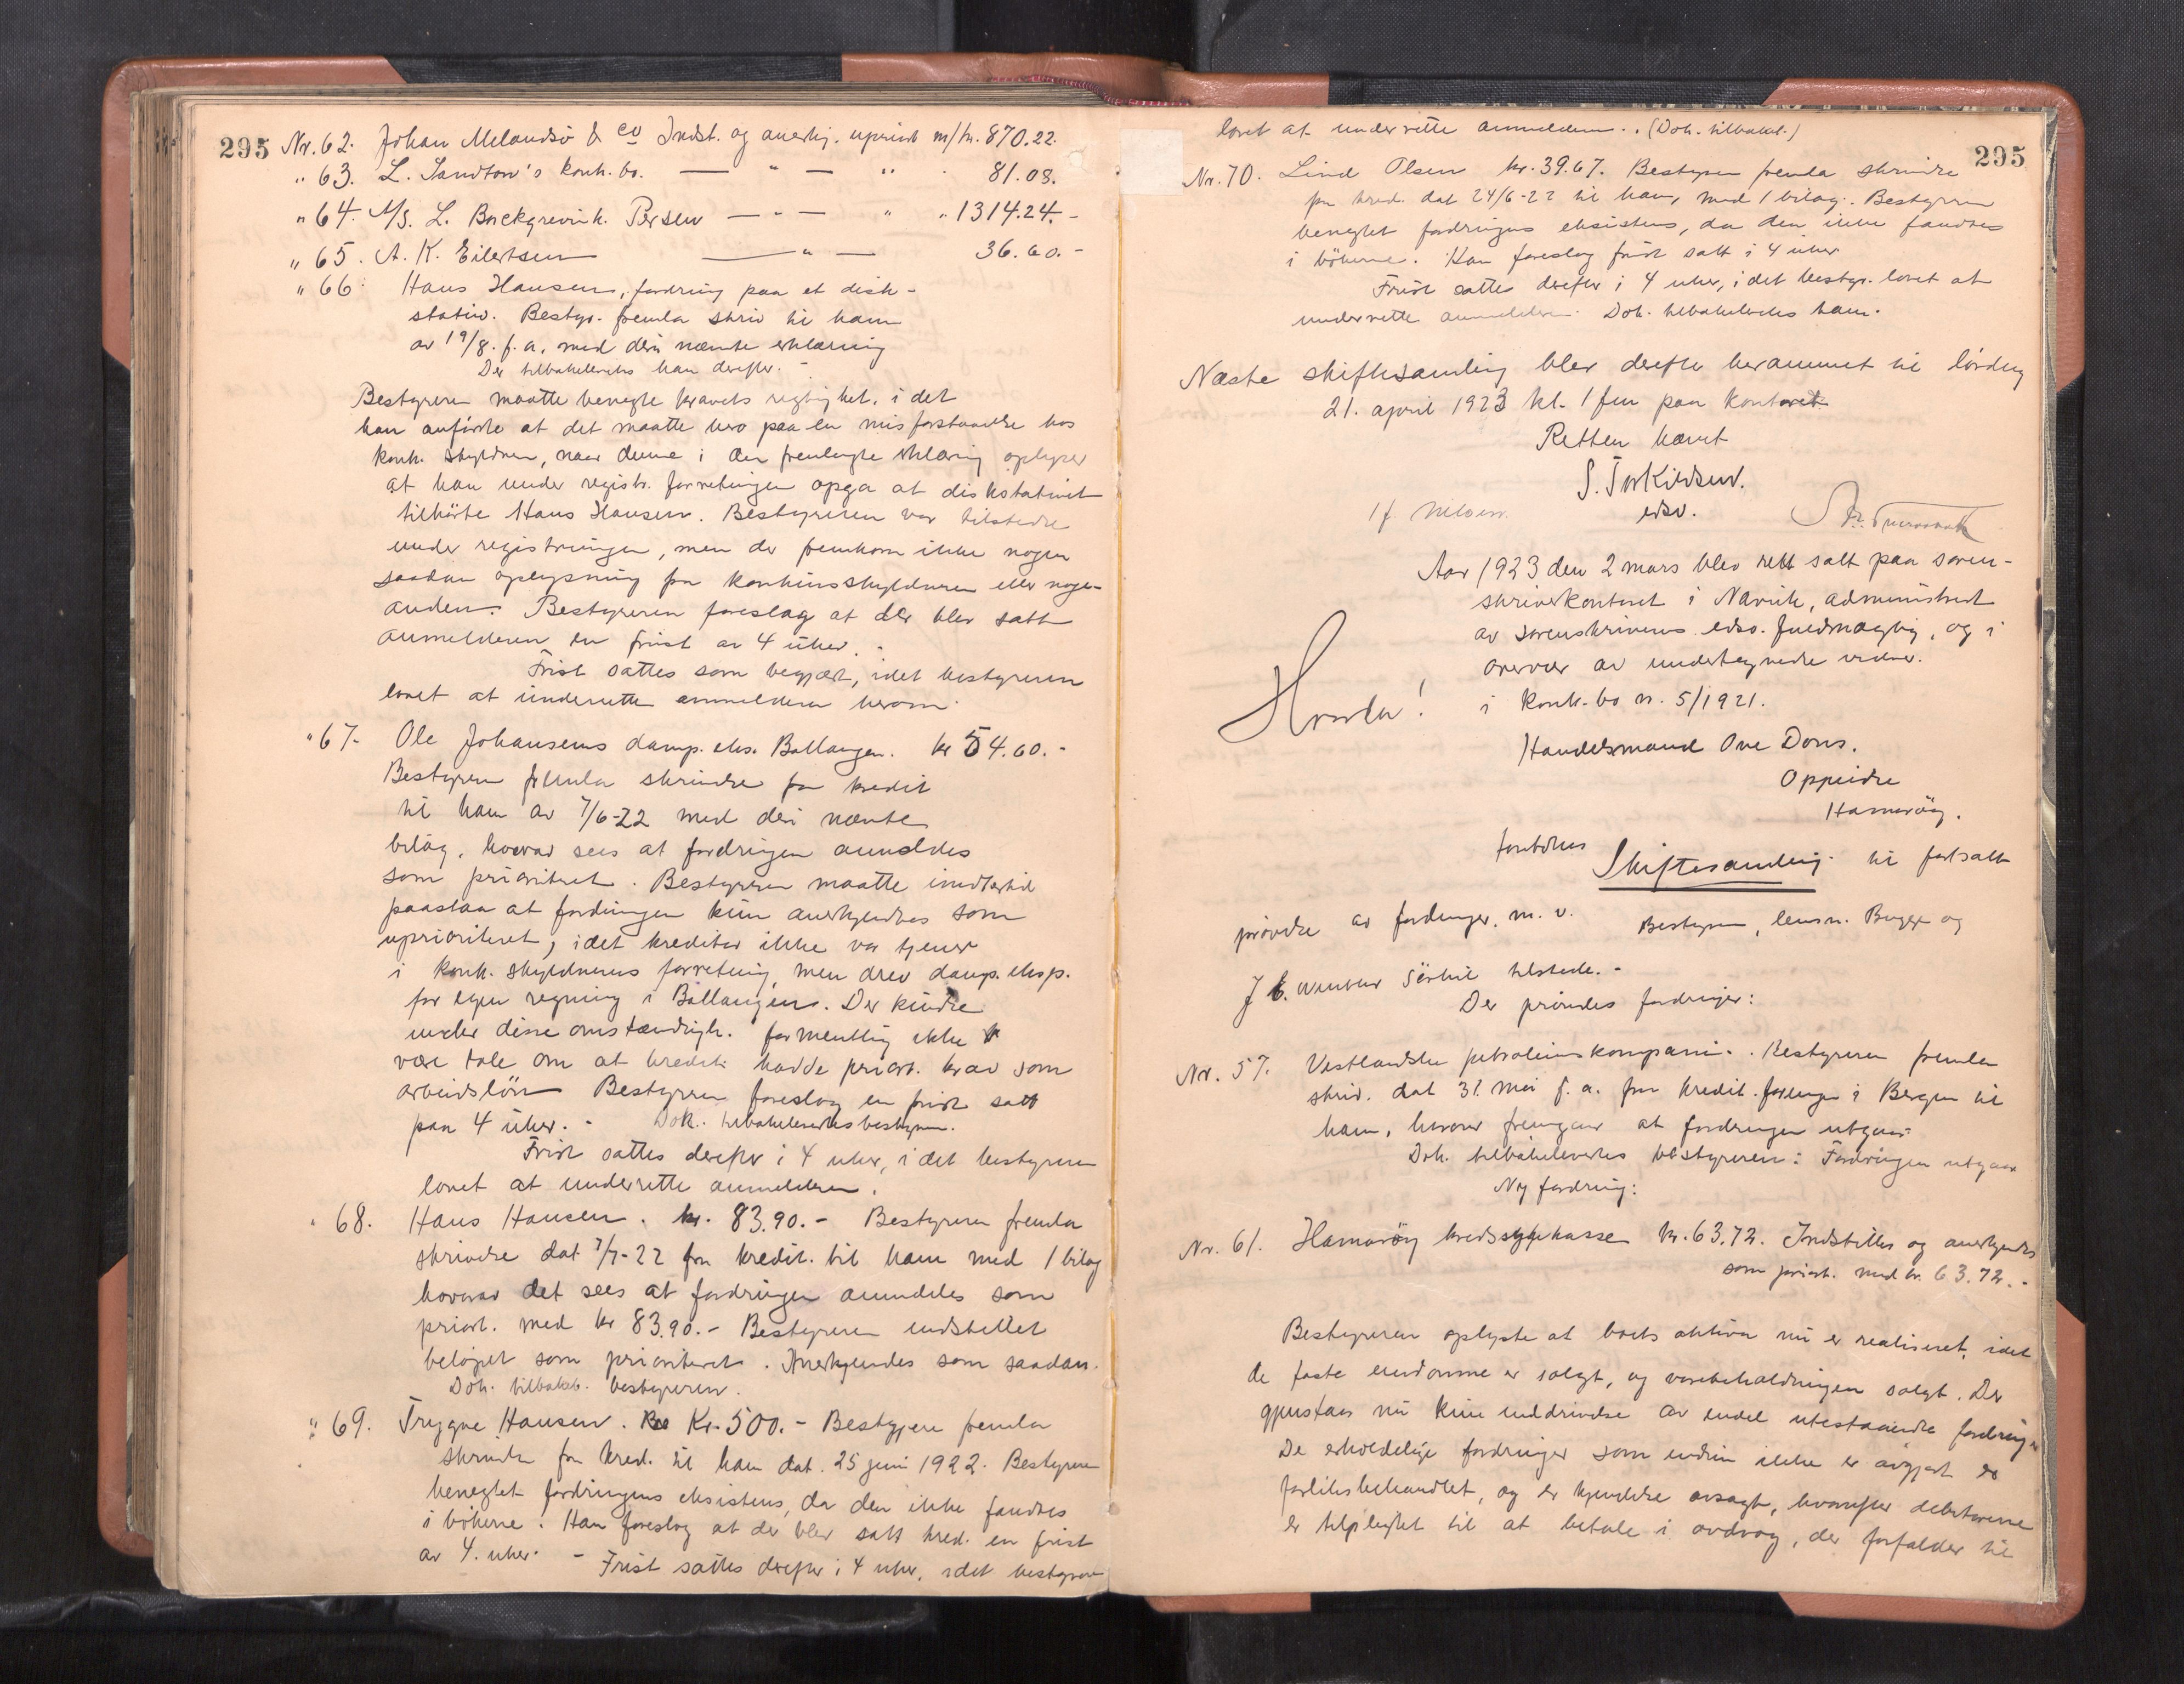 295
Nr. 62. Johan Melandsö & Co Indst. og anerkj. uprior m/kr. 870.22.
" 63. L. Sandtorv's konk. bo. — " — " 81.08.
" 64. A/S. L. Backgrevink. Persen — " — " " 1314.24.-
" 65. A. K. Eilertsen — " — 36.60.-
" 66. Hans Hansen, fordring paa et disk-
stativ. Bestyr. fremla skriv til ham
av 19/8. f. a. med deri nævnte erklæring
Der tilbakelevertes ham derefter. -
Bestyreren maatte benegte kravets rigtighet, i det
han anförte at det maatte bero paa en misforstaaelse hos
konk. skyldneren, naar denne i den fremlagte erklæring oplyser
at han under registr. forretningen opga at diskstativet
tilhörte Hans Hansen. Bestyreren var tilstede
under registreringen, men der fremkom ikke nogen
saadan oplysning fra konkursskyldneren eller noge-
anden. Bestyreren foreslog at der blev satt
anmelderen en frist av 4 uker. -
Frist sattes som begjært, idet bestyreren
lovet at underrette anmelderen herom.
" 67. Ole Johansens damp. eks. Ballangen. kr 54.60.-
Bestyreren fremla skrivelse fra kredit
til ham av 7/6-22 med deri nævnte
bilag, hvorav sees at fordringen anmeldes
som prioritert. Bestyreren maatte imidlertid
paastaa at fordringen kun anerkjendtes som
uprioritert, idet kreditor ikke var tjener
i konk. skyldnerens forretning, men drev damp. eksp.
for egen regning i Ballangen. Der kunde
under disse omstændigh. formentlig ikke
være tale om at kredit. hadde priort. krav som
arbeidslön Bestyreren foreslog en frist satt
paa 4 uker. - Dok. tilbakelevertes bestyreren.
Frist sattes derefter i 4 uker, i det bestyreren
lovet at underrette anmelderen.
" 68. Hans Hansen. kr. 83.90.- Bestyreren fremla
skrivelse dat 7/7-22 fra kredit. til ham med 1 bilag
hvorav det sees at fordringen anmeldes som
priort. med kr 83.90.- Bestyreren indstillet
belöpet som prioritert. Anerkjendes som saadan.
Dok. tilbakeb. bestyreren.
" 69. Trygve Hansen. Kr. 500.- Bestyrere fremla
skrivelse fra kred. til ham dat. 25 juni 1922. Bestyreren
benegtet fordringens eksistens, da den ikke fandtes
i bökerne. Han foreslog at der blev satt kred. en frist
av 4. uker. - Frist sattes derefter i 4 uker, idet bestyreren
295
lovet at underrette anmelderen. (Dok. tilbakel.)
Nr. 70. Lind Olsen kr. 39.67. Bestyreren fremla skrivelse
fra kred. dat 24/6-22 til ham, med 1 bilag. Bestyreren
benegtet fordringens eksistens, da den ikke fandtes
i bökerne. Han foreslog frist satt i 4 uker
Frist sattes derefter i 4 uker, i det bestyr. lovet at
underrette anmelderen. Dok. tilbakelevertes ham.
Næste skiftesamling blev derefter berammet til lördag
21. april 1923 kl. 1 fm paa kontoret
Retten hævet
S. Torkildsen.
edsv.
Aar 1923 den 2 mars blev rett satt paa soren-
skriverkontoret i Narvik, administrert
av sorenskriverens edsv. fuldmægtig, og i
overvær av undertegnede vidner.
i konk. bo nr. 5/1921.
Handelsmand Ove Dons.
Oppeidre
Hamaröy.
foretokes
Skiftesamling til fortsatt
prövelse av fordringer, m. v. Bestyreren, lensm. Bugge og
tilstede. -
Der prövedes fordringer:
Nr. 57. Vestlandske petroleumskompani. Bestyreren fremla
skriv. dat 31. mai f. a. fra kredit. foreningen i Bergen til
ham, hvorav fremgaar at fordringen utgaar
Dok. tilbakelevertes bestyreren: Fordringen utgaar
Ny fordring:
Nr. 61. Hamaröy kredssykekasse kr. 63.72. Indstilles og anerkjendes
som priort. med kr. 63.72.-
Bestyreren oplyste at boets aktiva nu er realisert, idet
de faste eiendomme er solgt, og varebeholdningen solgt. Der
gjenstaar nu kun inddrivelse av endel utestaaende fordringer
De erholdelige fordringer som endnu ikke er avgjort er
forliksbehandlet, og er kjendelse avsagt, hvorefter debitorene
er tilpligtet til at betale i avdrag, der forfalder til